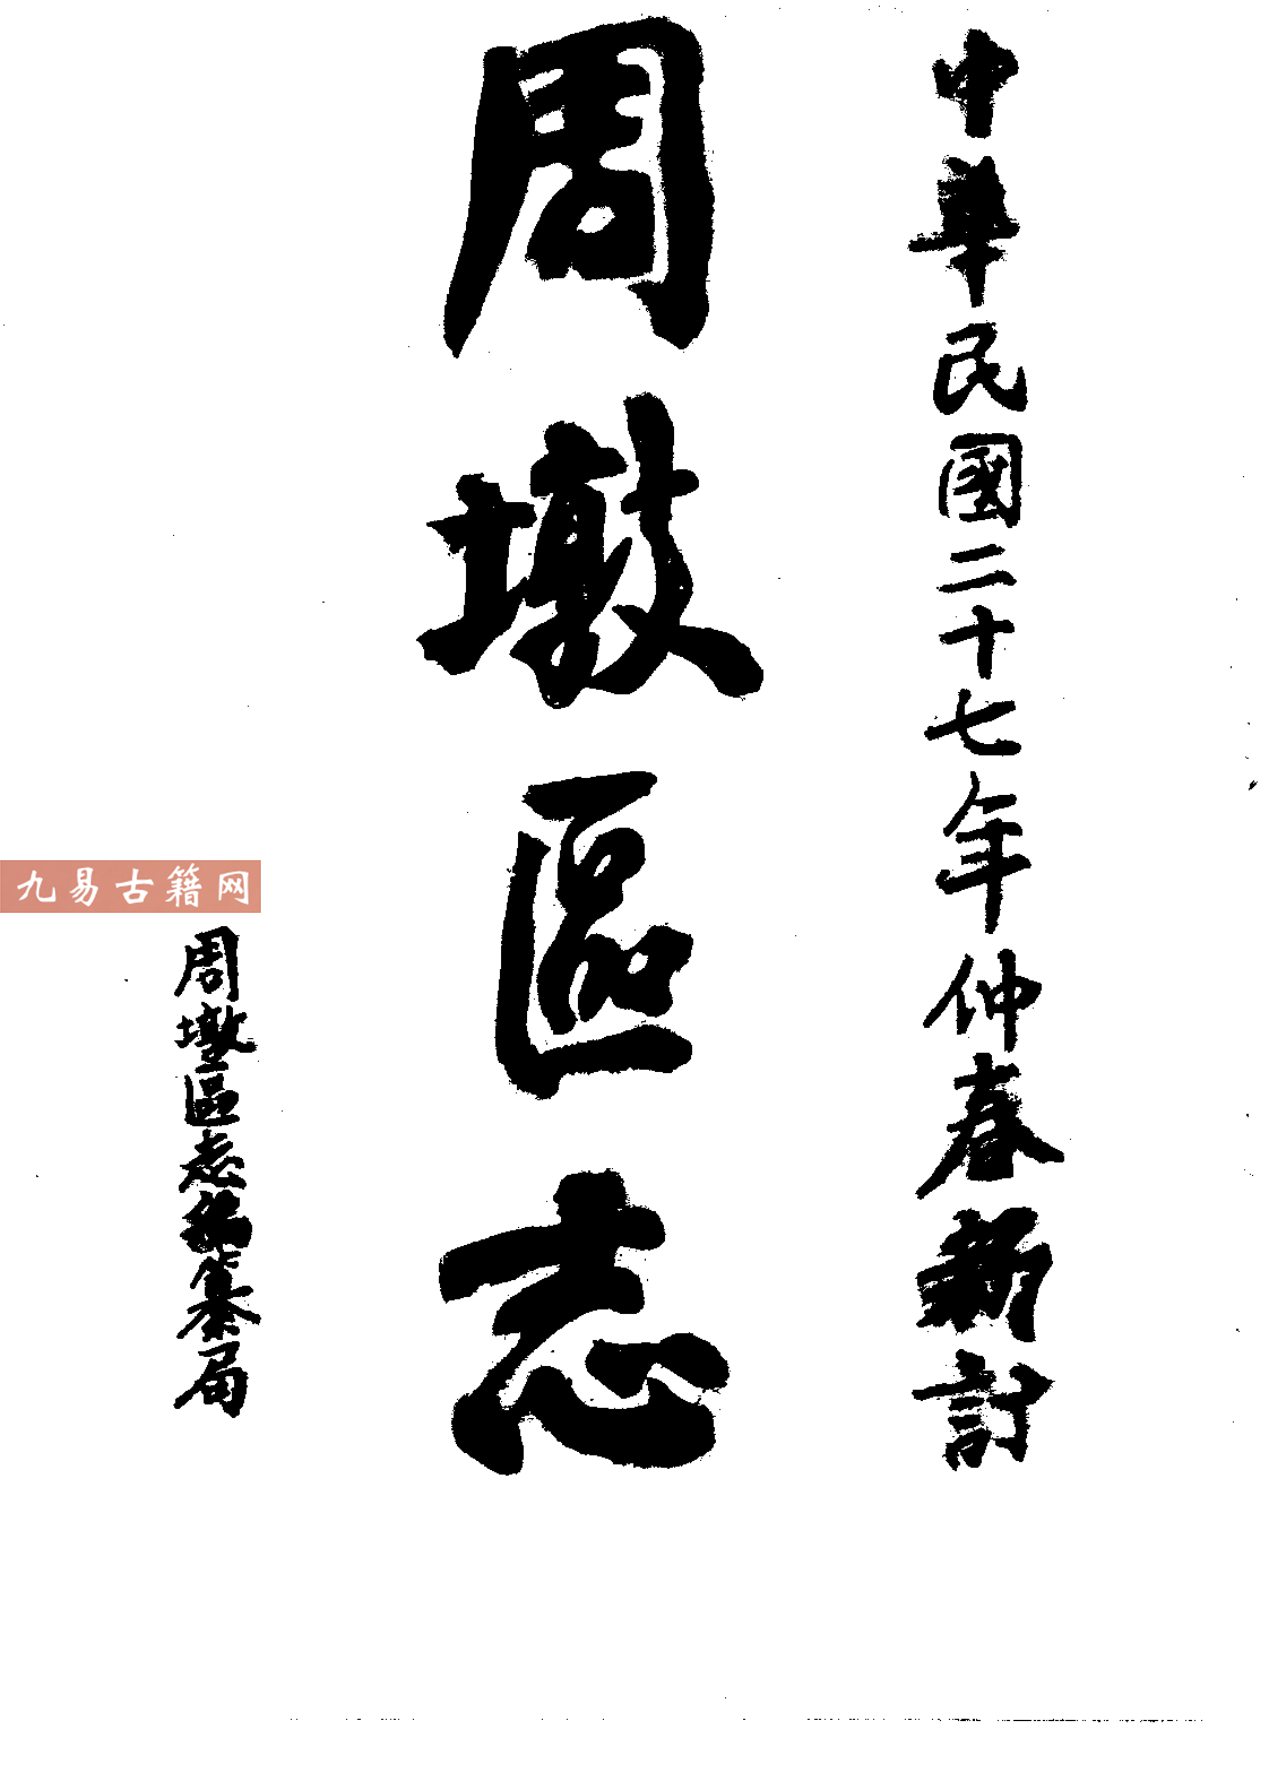 中華民國二十七年仲春新討
周墩區志
九易古籍网
周墩區志编纂局